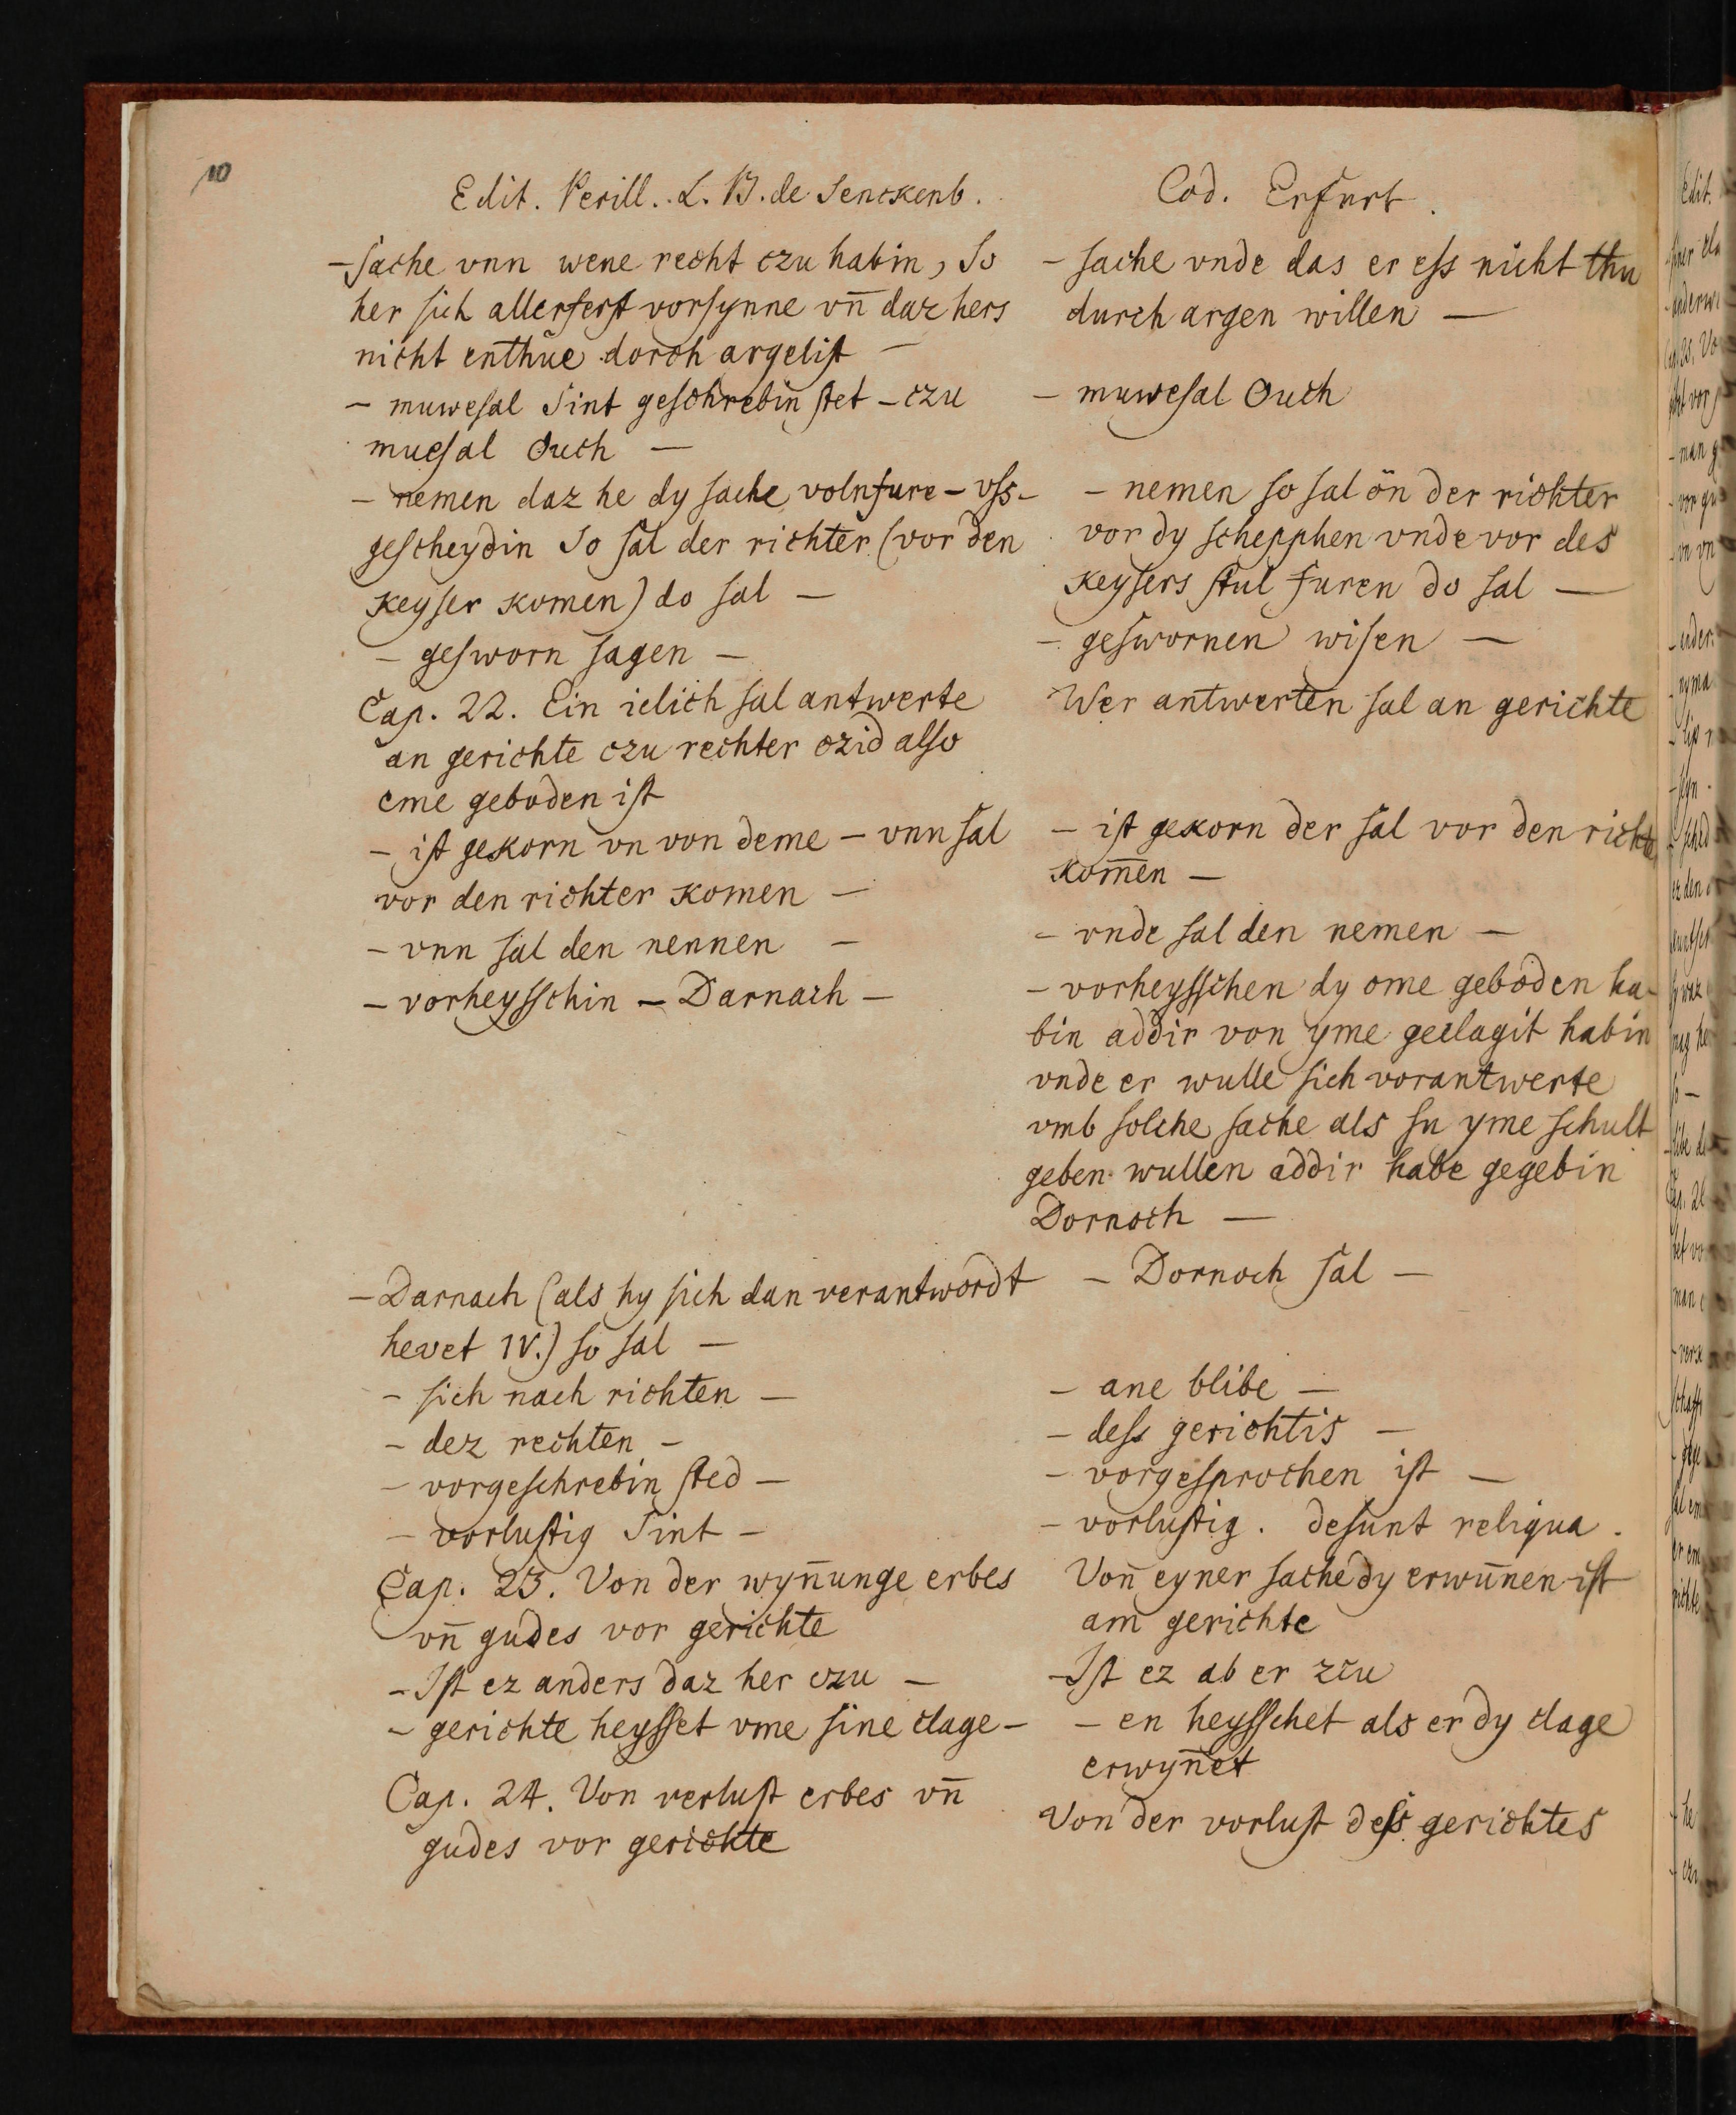 10
Edit. Perill. L. B. de Senckenb.
- sache vnn wene recht czu habin, So
her sich allerferst vorsynne vn̄ daz hers
nicht enthue dorch argelist -
- muwesal Sint geschrebin stet - czu
muesal Ouch -
- nemen daz he dy sache volnfure - vss-
gescheydin So sal der richter (vor den
keyser komen) do sal -
- gesworn sagen -
Cap. 22. Ein ielich sal antwerte
an gerichte czu rechter czid also
eme geboden ist
- ist gekorn vn von deme - vnn sal
vor den richter komen -
- vnn sal den nennen -
- vorheysschin - Darnach -
- Darnach (als hy sich dan verantwordt
hevet IV.) so sal -
- sich nach richten -
- dez rechten -
- vorgeschrebin sted -
- vorlustig Sint -
Cap. 23. Von der wyn̄unge erbes
vn̄ gudes vor gerichte
- Ist ez anders daz her czu -
- gerichte heysset vme sine clage -
Cap. 24. Von verlust erbes vn̄
gudes vor gerichte
Cod. Erfurt.
- sache vnde das er ess nicht thu
durch argen willen -
- muwesal Ouch
- nemen so sal ön der richter
vor dy schepphen vnde vor des
keysers stul furen do sal -
- geswornen wisen -
Wer antwerten sal an gerichte
- ist gekorn der sal vor den richte
kom̄en -
- vnde sal den nemen -
- vorheysschen dy ome geboden ha-
bin addir von yme geclagit habin
vnde er wulle sich vorantwerte
vmb solche sache als su yme schult
geben wullen addir habe gegebin
Dornoch -
- Dornoch sal -
- ane blibe -
- dess gerichtis -
- vorgesprochen ist -
- vorlustig. desunt reliqua.
Von̄ eyner sache dy erwun̄en ist
am gerichte
- Ist ez aber zcu
- en heysschet als er dy clage
erwyn̄et
Von der vorlust dess gerichtes